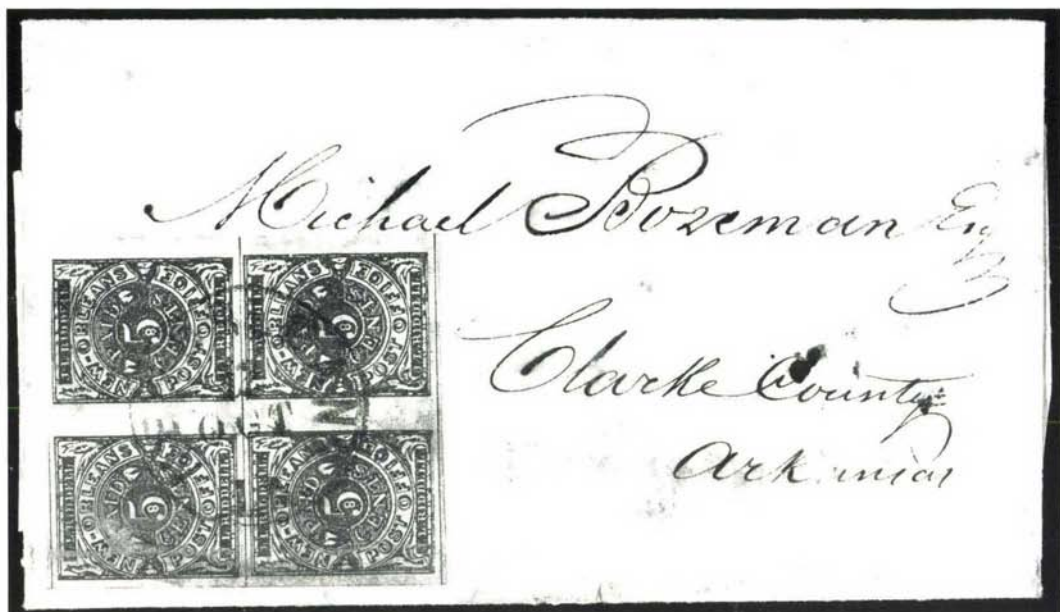 Michael Bozeman Esq
Clarke County
Arkansas
NEW-ORLEANS POST OFFICE
PAID 5 CENTS
J.L.RIDDELL
NEW-ORLEANS POST OFFICE
PAID 5 CENTS
J.L.RIDDELL
NEW-ORLEANS POST OFFICE
PAID 5 CENTS
J.L.RIDDELL
NEW-ORLEANS POST OFFICE
PAID 5 CENTS
J.L.RIDDELL